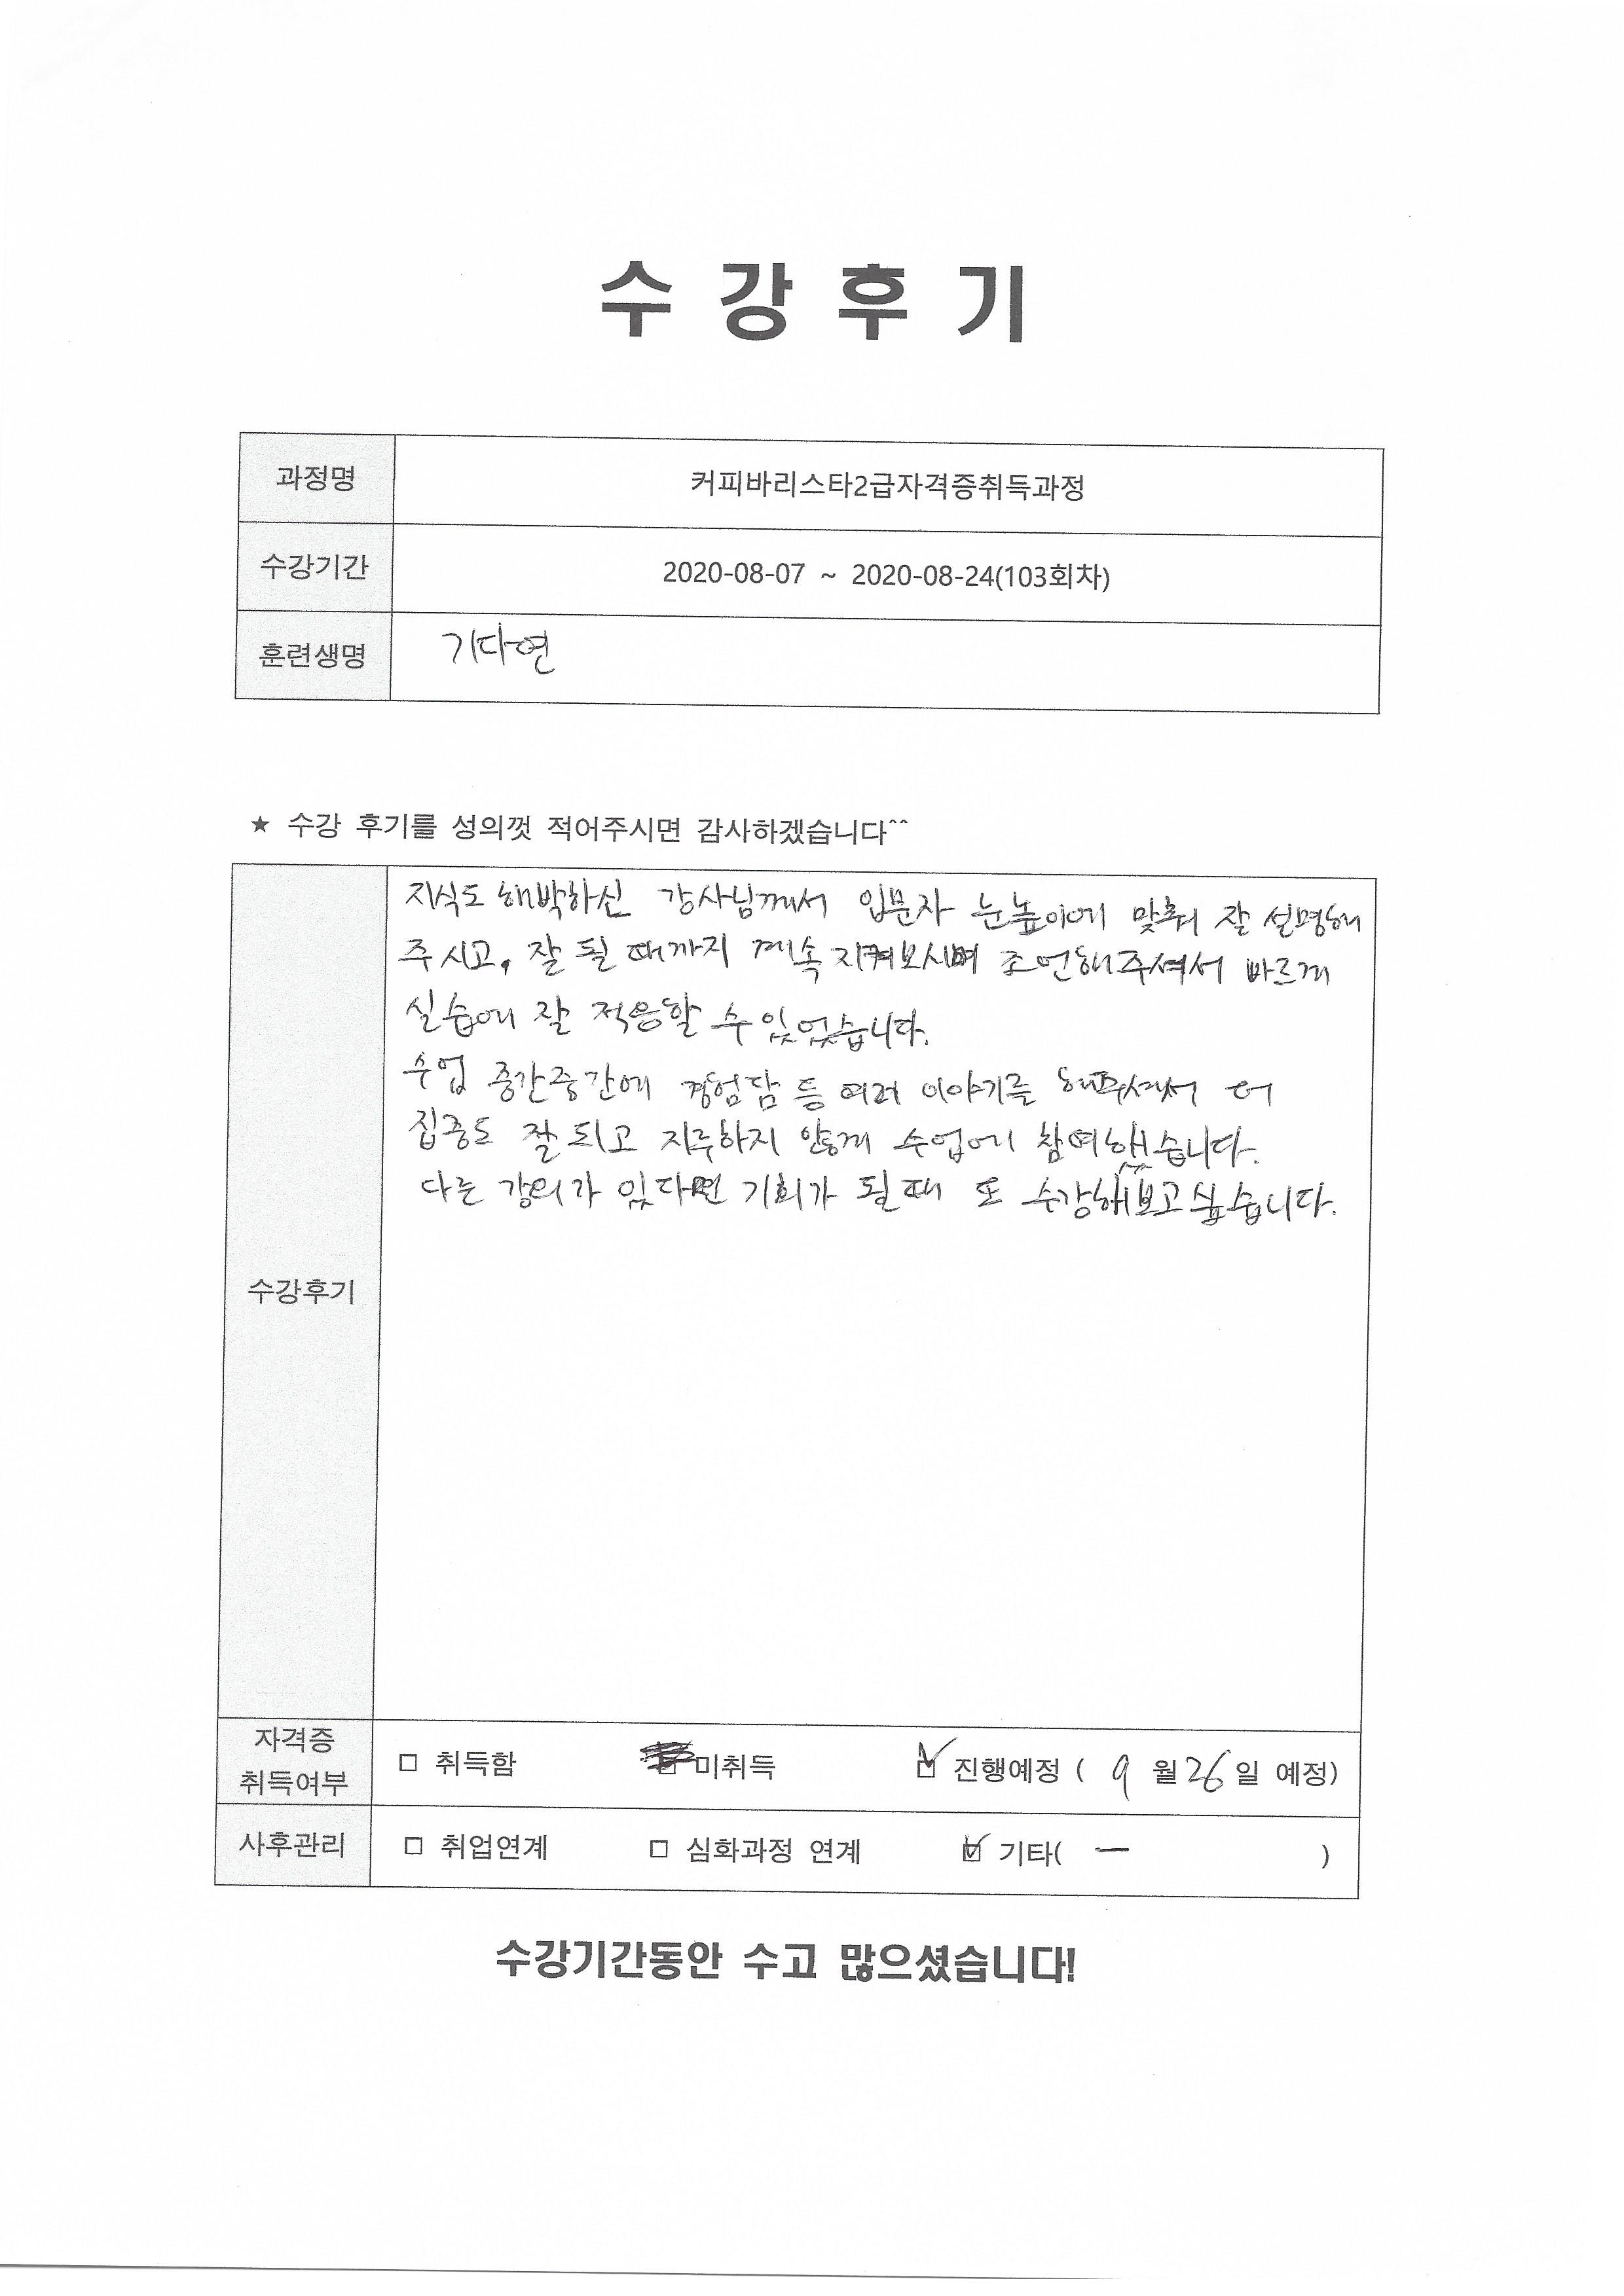 수 강 후 기
과정명 커피바리스타2급자격증취득과정
수강기간 2020-08-07 ~ 2020-08-24(103회차)
훈련생명 기다연
★ 수강 후기를 성의껏 적어주시면 감사하겠습니다^^
지식도 해박하신 강사님께서 입문자 눈높이에 맞춰 잘 설명해
주시고, 잘 될 때까지 계속 지켜보시며 조언해주셔서 빠르게
실습에 잘 적응할 수 있었습니다.
수업 중간중간에 경험담 등 여러 이야기를 해주셔서 더
집중도 잘 되고 지루하지 않게 수업에 참여했습니다.
다른 강의가 있다면 기회가 될 때 또 수강해보고싶습니다.
수강후기
자격증
취득여부
□ 취득함 □ 미취득 ☑ 진행예정 ( 9 월 26 일 예정)
사후관리 □ 취업연계 □ 심화과정 연계 ☑ 기타( ー )
수강기간동안 수고 많으셨습니다!